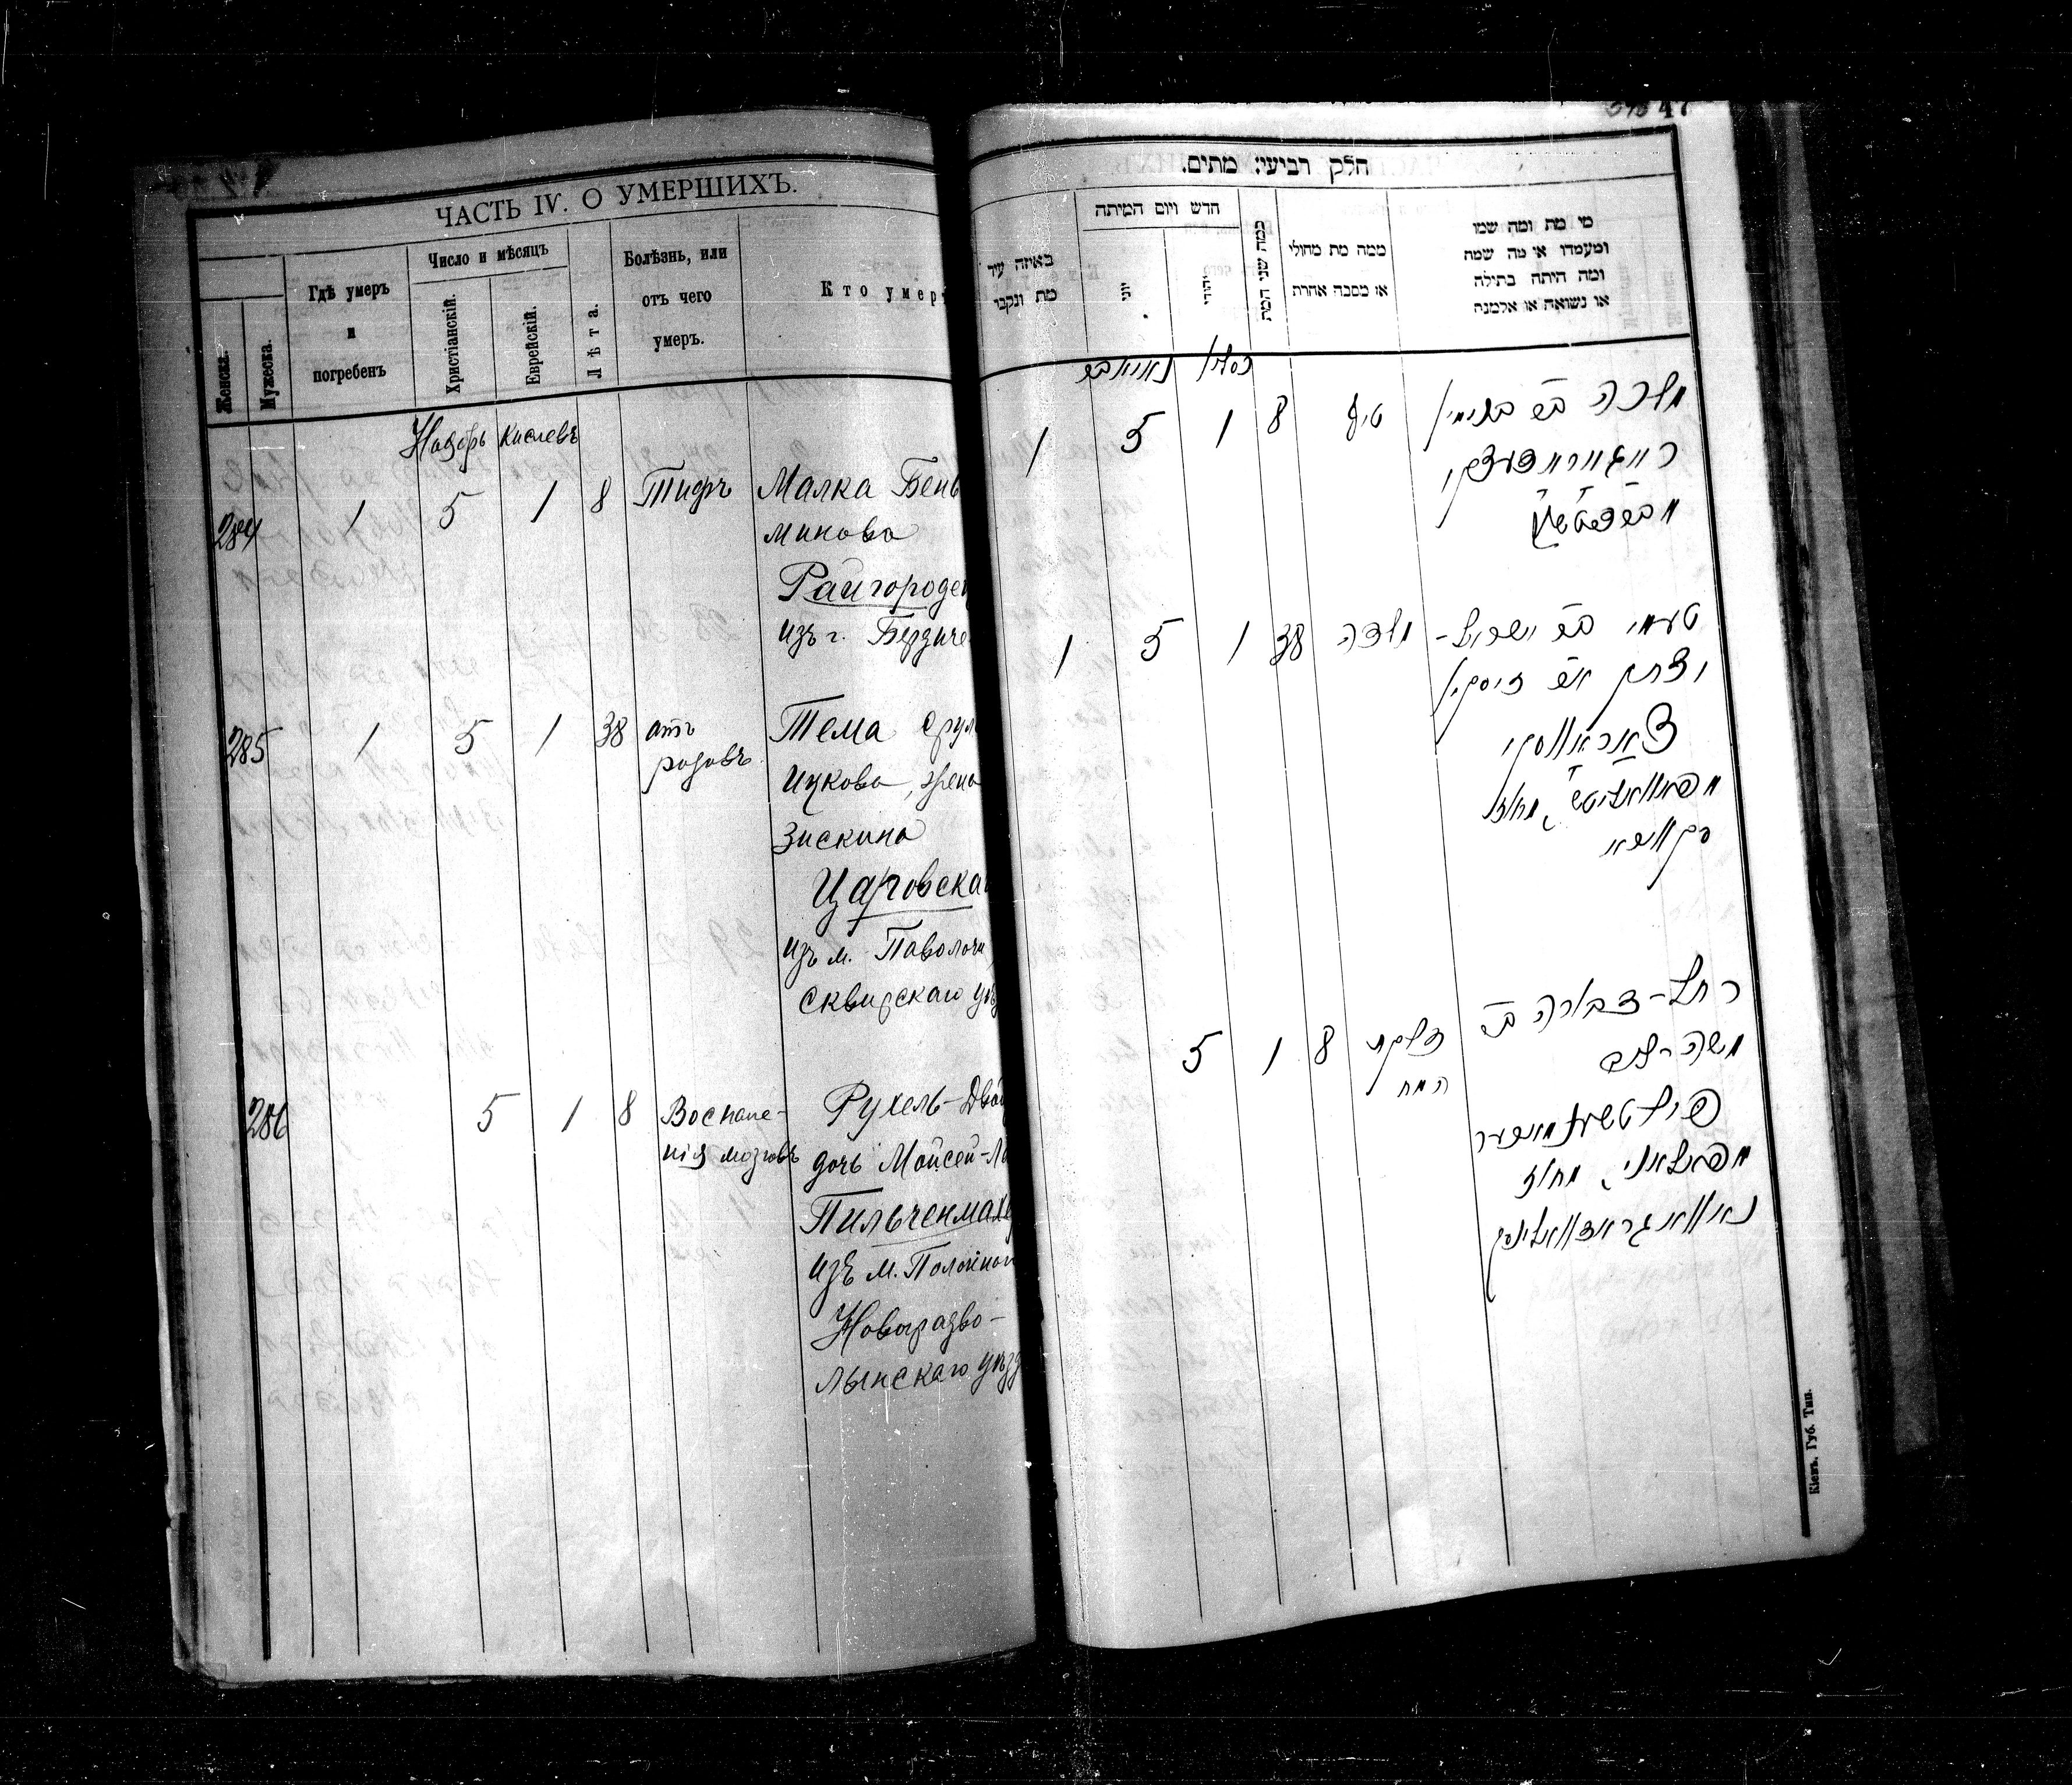 ЧАСТЬ IV. О УМЕРШИХЪ.
Женска.
Мужеска.
Гдѣ умеръ
и
погребенъ
Число и мѣсяцъ
Христіанскій.
Еврейскій.
Лѣта.
Болѣзнь, или
отъ чего
умеръ.
Кто умер
Ноябрь Кислевъ
284 1 5 1 8 Тифъ Малка Бень
минова
Райгородец
изъ г. Бердиче
285 1 5 1 38 отъ Тема Срул
родовъ
Ицкова, жена
Зискина
Царовская
изъ м. Паволочи,
Сквирскаго уѣз
286 5 1 8 Воспале- Рухель-Двой
нія мозговъ дочь Мойсей-Ле
Пильченмахе
изъ м. Полонной
Новоградво-
лынскаго уѣзд
חלק רביעי: מתים.
באיזה עיר
מת ונקבר
חדש ויום המיתה
יוני
יהודי
כמה שני המת
ממה מת מחולי
או מסבה אחרת
מי מת ומה שמו
ומעמדו או מה שמה
ומה היתה בתולה
או נשואה או אלמנה
נאיאבר כסליו
1 5 1 8 טיף מלכה בת בנימין
רייגוראדעצקי
1 5 1 38 מלדה טעמי בת ישראל-
יצחק אשת זיסקין
צאראווסקי
מפאוואליטש, מחוז
סקווירא
5 1 8 דלקת רחל-דבורה בת
המח
משה-לייב
פילטשענמאכער
מפאלאני, מחוז
נאוואגראדוואלינסק
Кіевъ. Губ. Тип.